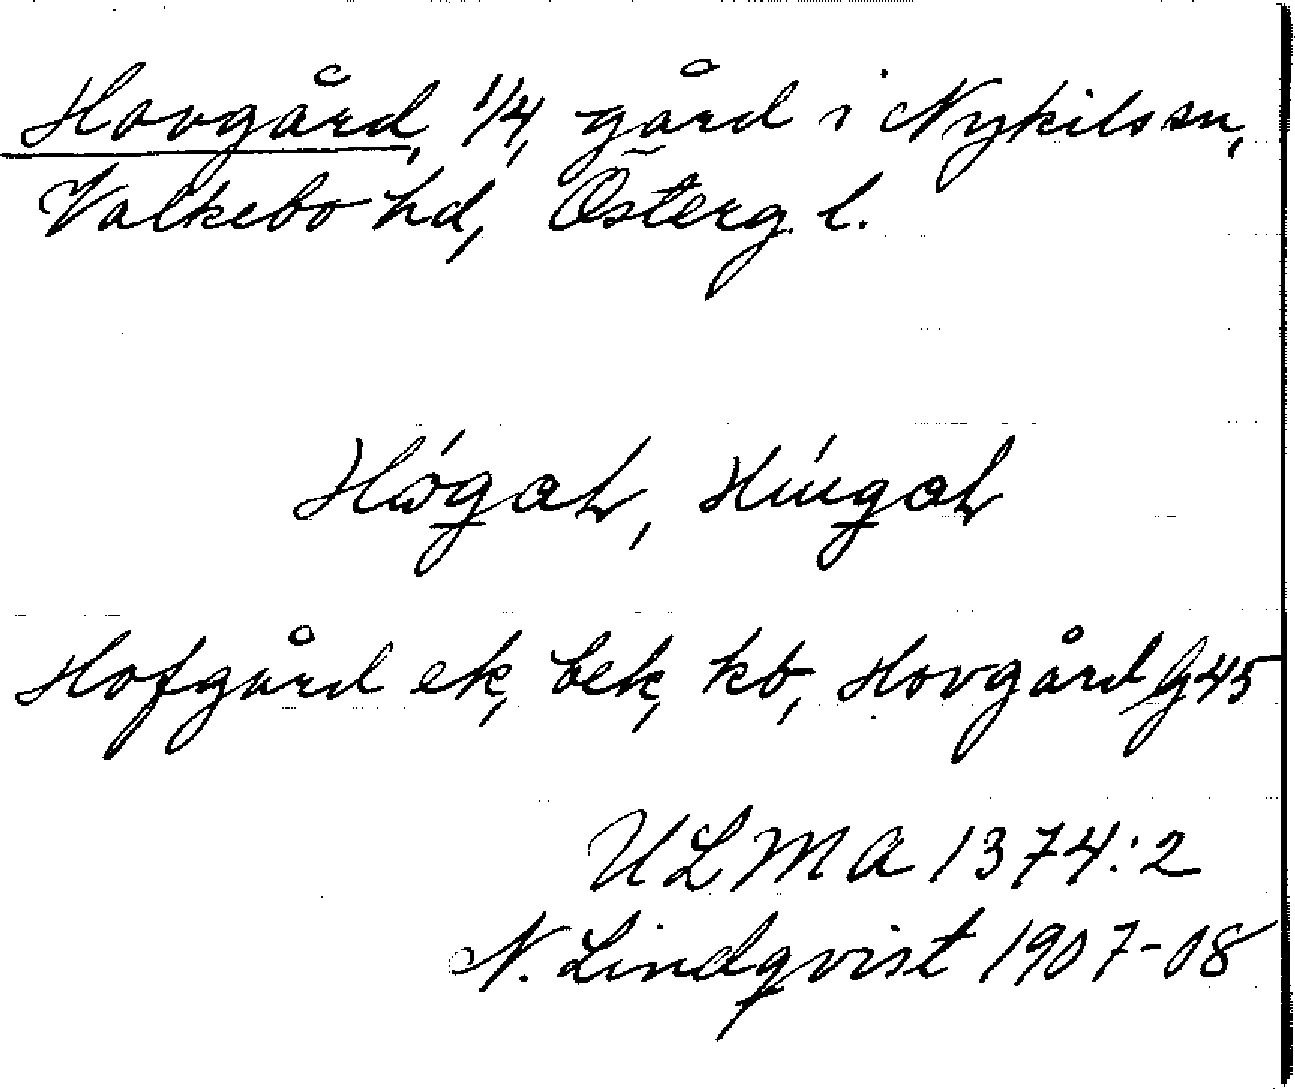 Hovgård, 1/4, gård i Nykils sn,
Valkebo hd, Österg. l.
Hofgård ek, bek, kb, Hovgård Jg 45
ULMA 1374:2
N. Lindqvist 1907-08